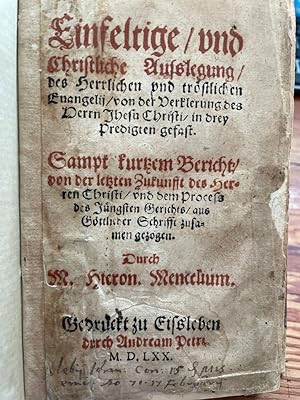 Einfeltige / vnd
Christliche Auslegung /
des Herrlichen vnd tröstlichen
Euangelij / von der Verklerung des
Herrn Jhesu Christi / in drey
Predigten gefast.
Sampt kurtzem Bericht /
von der letzten Zukunfft des Her-
ren Christi / vnd dem Process
des Jüngsten Gerichts / aus
Göttlicher Schrifft zusa-
men gezogen.
Durch
M. Hieron. Mencelium.
Gedrückt zu Eissleben
durch Andream Petri.
M. D. LXX.